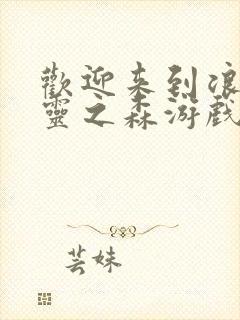 歡迎来到浪
靈之森游戲
芸妹